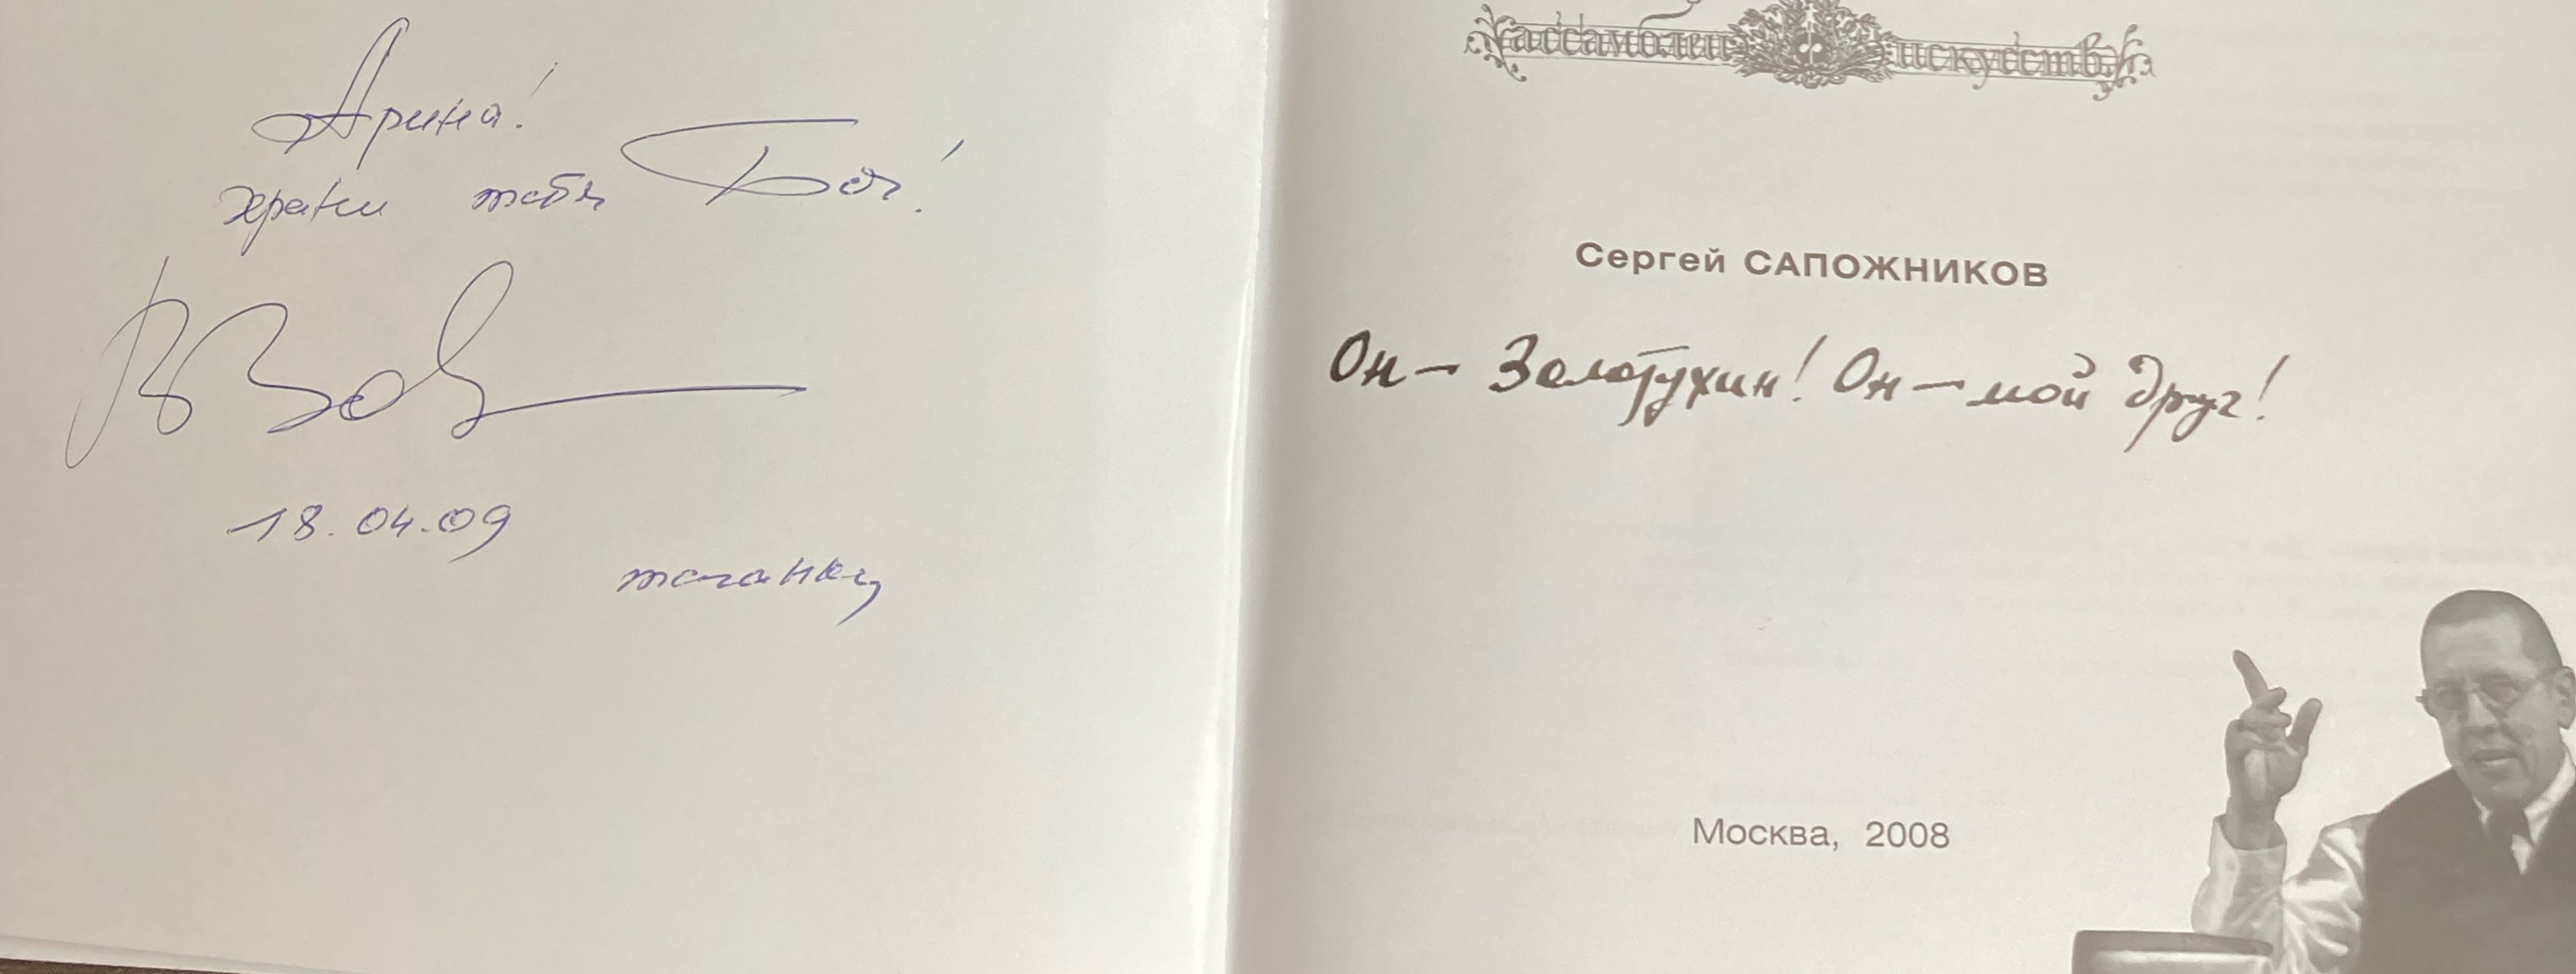 Арина!
храни тебя Бог!
18.04.09
таганка
ассамблея искусств
Сергей САПОЖНИКОВ
Он – Золотухин! Он – мой друг!
Москва, 2008